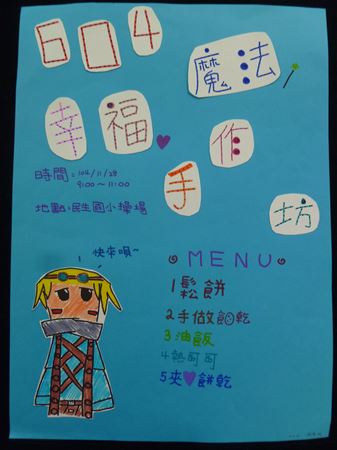 604
魔法
幸福♥手作坊
時間：104/11/28
9:00～11:00
地點：民生國小操場
快來唄~
MENU
1鬆餅
2手做餅乾
3油飯
4熱可可
5夾♥餅乾